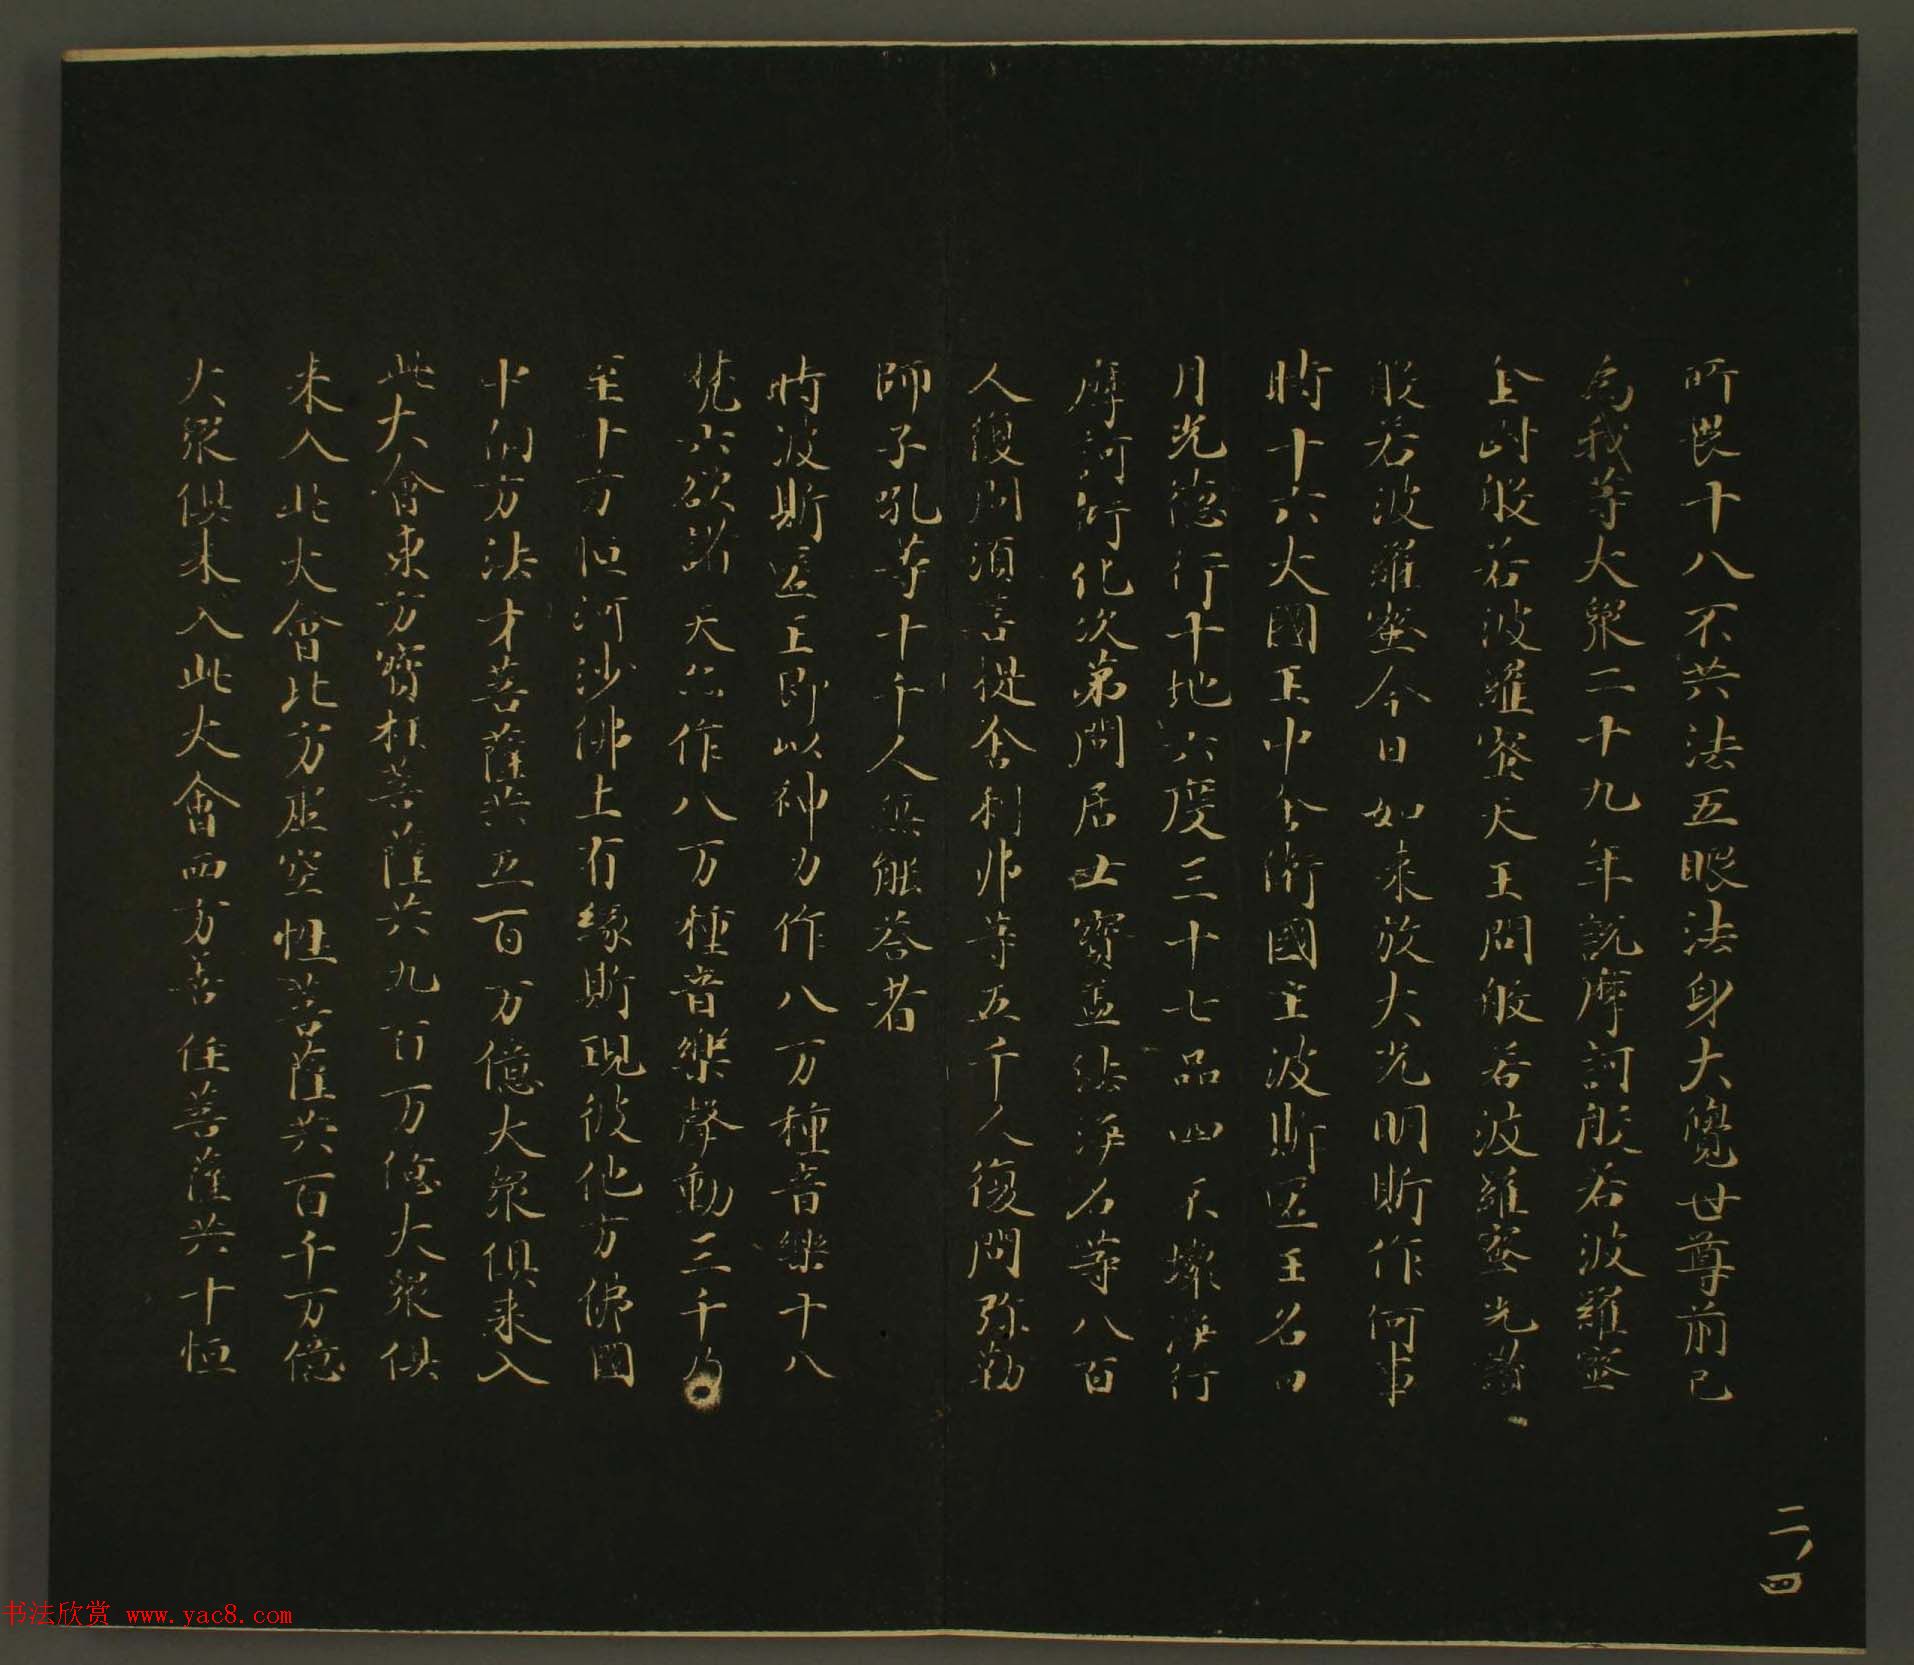 所畏十八不共法五眼法身大覺世尊前已
為我等大眾二十九年說摩訶般若波羅蜜
金剛般若波羅蜜天王問般若波羅蜜光讚
般若波羅蜜今日如来放大光明斯作何事
時十六大國王中舍衛國主波斯匿王名曰
月光德行十地六度三十七品四不壞淨行
摩訶衍化次第問居士寶盖法淨名等八百
人復問須菩提舍利弗等五千人復問弥勒
師子吼等十千人無能荅者
時波斯匿王即以神力作八万種音樂十八
梵六欲諸天亦作八万種音樂聲動三千乃
至十方恒河沙佛土有緣斯現彼他方佛國
中南方法才菩薩共五百万億大眾俱来入
此大會東方寶柱菩薩共九百万億大眾俱
来入此大會北方虛空性菩薩共百千万億
大眾俱来入此大會西方善住菩薩共十恒
二ノ四
书法欣赏 www.yac8.com